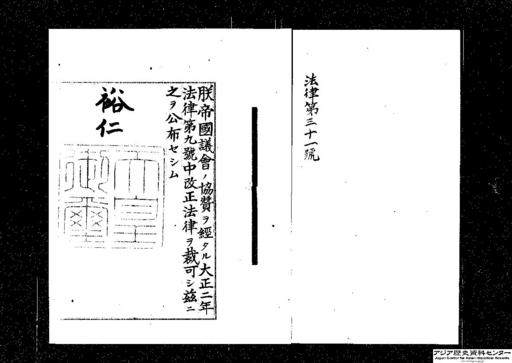 法律第三十一號
朕帝國議會ノ協賛ヲ經タル大正二年
法律第九號中改正法律ヲ裁可シ茲ニ
之ヲ公布セシム
裕仁
天皇
御璽
アジア歴史資料センター
Japan Center for Asian Historical Records